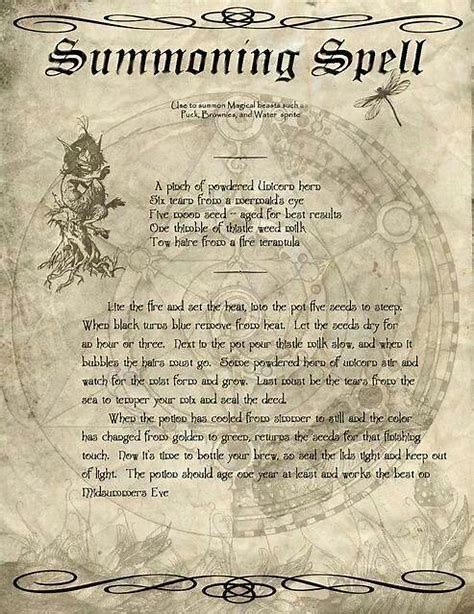 Summoning Spell
Use to summon Magical beasts such a
Puck, Brownies, and Water sprite
A pinch of powdered Unicorn horn
Six tearn from a mermaids eye
Five moon seed - aged for best results
One thimble of thistle weed milk
Tow haire from a fire terantula
Lite the fire and set the heat, into the pot five seeds to steep.
When black turns blue remove from heat. Let the seeds dry for
an hour or three. Next in the pot pour thistle milk slow, and when it
bubbles the hairs must go. Some powdered horn of unicorn stir and
watch for the mist form and grow. Last must be the tears from the
sea to temper your mix and seal the deed.
When the potion has cooled from simmer to still and the color
has changed from golden to green, returns the seeds for that finishing
touch. Now it's time to bottle your brew, so seal the lids tight and keep out
of light. The potion should age one year at least and works the best on
Midsummers Eve